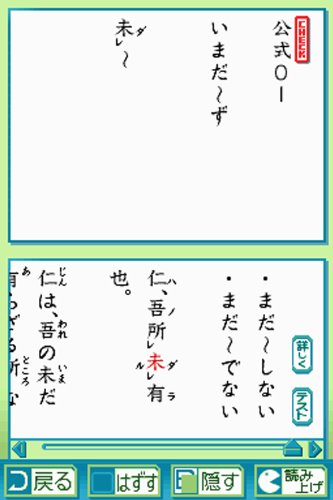 CHECK
公式01
いまだ〜ず
未ダレ〜
・まだ〜しない
・まだ〜でない
詳しく
テスト
仁ハ、吾ノ所ルレ未ダレ有ラ
也。
仁じんは、吾われの未いまだ
有あらざる所ところな
戻る
はずす
隠す
読み上げ